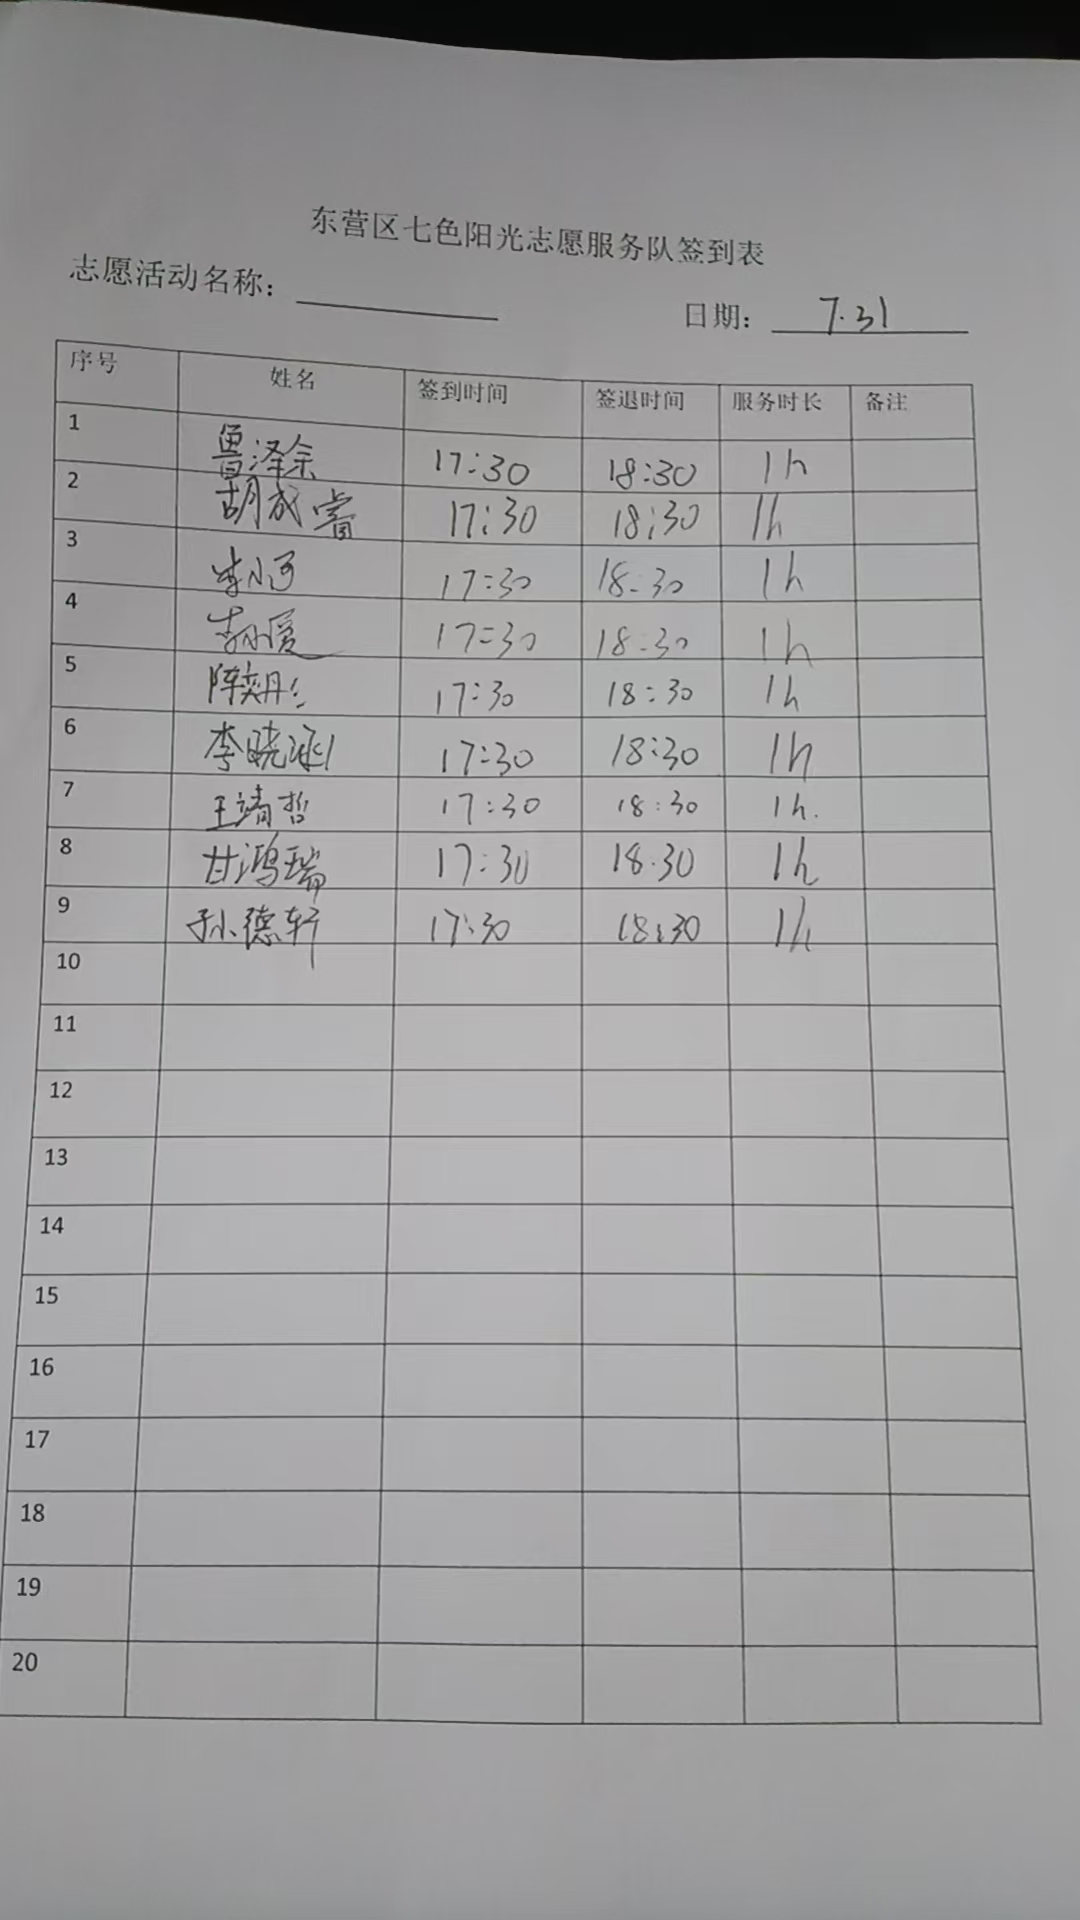 东营区七色阳光志愿服务队签到表
志愿活动名称：
日期： 7.31
序号 姓名 签到时间 签退时间 服务时长 备注
1 鲁泽余 17:30 18:30 1h
2 胡成睿 17:30 18:30 1h
3 李小 17:30 18:30 1h
4 李小 17:30 18:30 1h
5 陈奕丹 17:30 18:30 1h
6 李晓涵 17:30 18:30 1h
7 王靖哲 17:30 18:30 1h.
8 甘鸿瑞 17:30 18.30 1h
9 孙德轩 17:30 18:30 1h
10
11
12
13
14
15
16
17
18
19
20